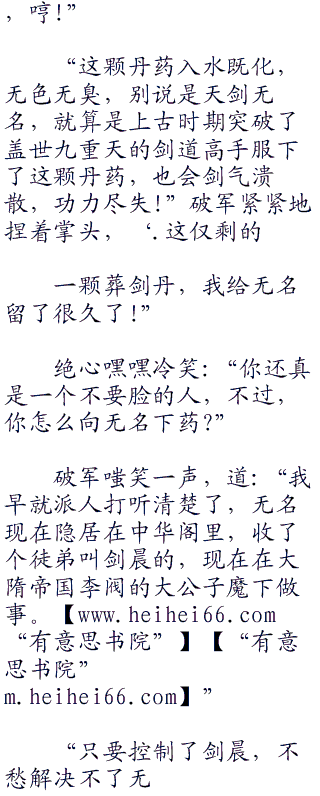 ，哼！”
“这颗丹药入水既化，
无色无臭，别说是天剑无
名，就算是上古时期突破了
盖世九重天的剑道高手服下
了这颗丹药，也会剑气溃
散，功力尽失！”破军紧紧地
捏着掌头，‘.这仅剩的
一颗葬剑丹，我给无名
留了很久了！”
绝心嘿嘿冷笑：“你还真
是一个不要脸的人，不过，
你怎么向无名下药?”
破军嗤笑一声，道：“我
早就派人打听清楚了，无名
现在隐居在中华阁里，收了
个徒弟叫剑晨的，现在在大
隋帝国李阀的大公子魔下做
事。【www.heihei66.com
“有意思书院”】【“有意
思书院”
m.heihei66.com】”
“只要控制了剑晨，不
愁解决不了无